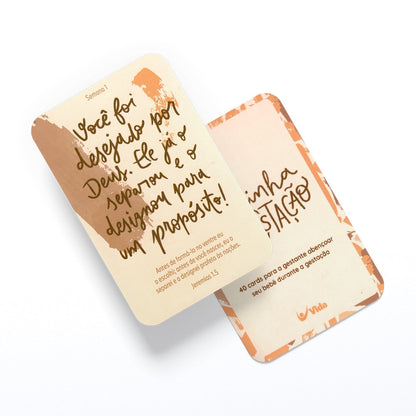 Semana 1
Você foi
desejado por
Deus. Ele já o
separou e o
designou para
um propósito!
Antes de formá-lo no ventre eu
o escolhi; antes de você nascer, eu o
separei e o designei profeta às nações.
Jeremias 1.5
inha
STAÇÃO
40 cards para a gestante abençoar
seu bebê durante a gestação
Vida